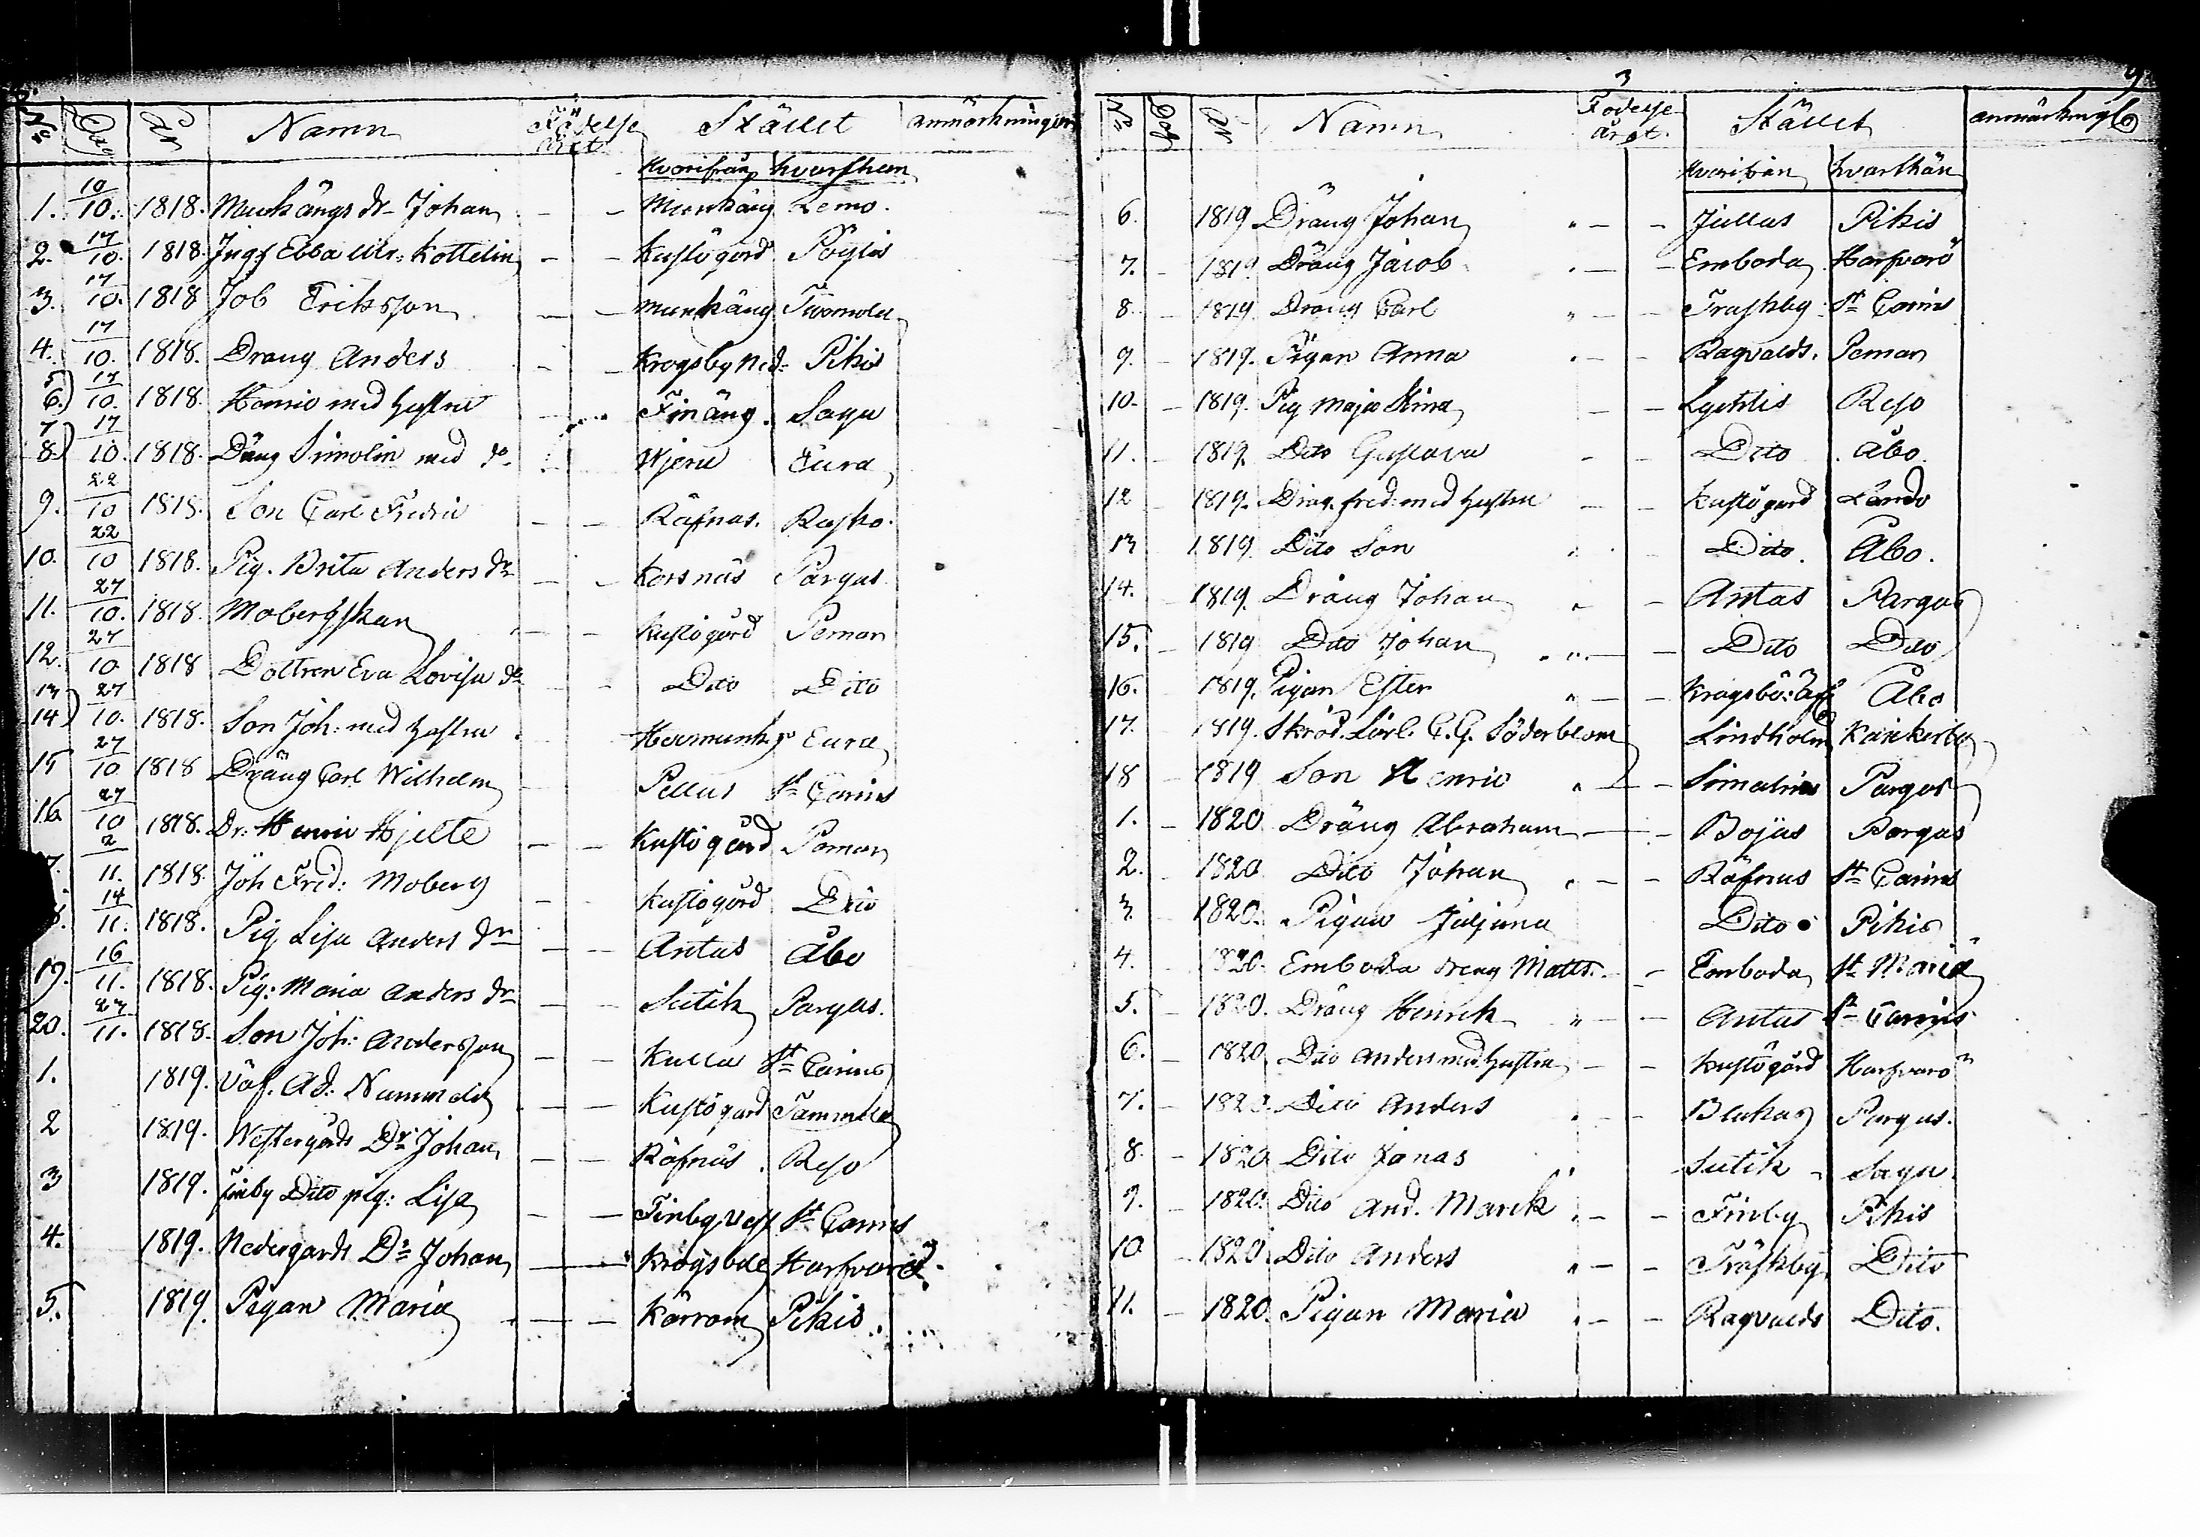 No Dag År Namn Födelse Året Stället anmärkningar
Hvarifrån hvarthän
1. 10/10. 1818. Munkängs dr Johan Munkäng Lemo.
2. 17/10. 1818. Kustögård Pöytis
3. 17/10. 1818 Job Eriksson Munkäng
4. 17/10. 1818. Dräng Anders Krogsby Ned: Pikis
5 6.) 17/10. 1818. Henric med hustru Finäng. Sagu
7 8.) 17/10. 1818. Dräng Simolin med do Eura
9. 22/10 1818. Son Carl Fredric Räfnäs. Rusko.
10. 22/10 1818. Pig. Brita Anders dr Korsnäs Pargas
11. 27/10. 1818. Mobergskan Kustögård Pemar
12. 27/10 1818 Dottren Eva Lovisa do Dito Dito
13 14) 27/10. 1818. Son Joh: med hustru Eura
15 27/10 1818 Dräng Carl Wilhelm St Carins
16. 27/10 1818. Dr: Henric Hjelte Kustögård Pemar
2/11. 1818. Joh Fred: Moberg Kustögård Dito
14/11. 1818. Pig Lisa Anders dr Antas Åbo
19. 16/11. 1818. Pig: Maria Anders dr Sutik Pargas.
20. 27/11. 1818. Son Joh: Andersson Kulla St Carins
1. 1819. Väf. Ad: Kustögard Tammela
2 1819. Westergårds Dr Johan Räfnäs. Reso
3 1819. Finby Dito pig: Lisa Finby St Carins
4. 1819. Nedergards Dr Johan Harfvarö
5. 1819. Pigan Maria Kärrom Pikis.
9.
No Dag År Namn Födelse Året Stället
Hvarifrån hvarthän
6. 1819 Dräng Johan Jullas Pikis
7. 1819 Dräng Jacob Emboda Harfvarö
8. 1819 Dräng Carl Träskby St Carins
9. 1819. Pigan Anna Ragvalds. Pemar
10. 1819. Pig Maja Stina Reso
11. 1819. Dito Gustava Dito Åbo.
12 1819. Dräng. fred: med hustru Kustögård
13 1819. Dito Son Dito. Åbo.
14. 1819. Dräng Johan Antas Pargas
15. 1819 Dito Johan Dito Dito
16. 1819. Pigan Ester Åbo
17. 1819. Skräd. Lärl. C. G. Söderblom Lindholm
18 1819 Son Henric Pargas
1. 1820. Dräng Abraham Bojas Pargas
2. 1820. Dito Johan Räfnäs St Carins
3. 1820. Pigan Juljana Dito Pikis
4. 1820. Emboda dreng Matts. Emboda St Maria
5. 1820. Dräng Henrik Antas St Carins
6. 1820. Dito Anders med hustru Kustögård Harfvarö
7. 1820. Dito Anders Pargas.
8. 1820. Dito Jonas Sutik Sagu.
9. 1820. Dito And. Mark Finby Pikis
10 1820. Dito Anders Träskby Dito
11. 1820. Pigan Maria Ragvalds Dito.